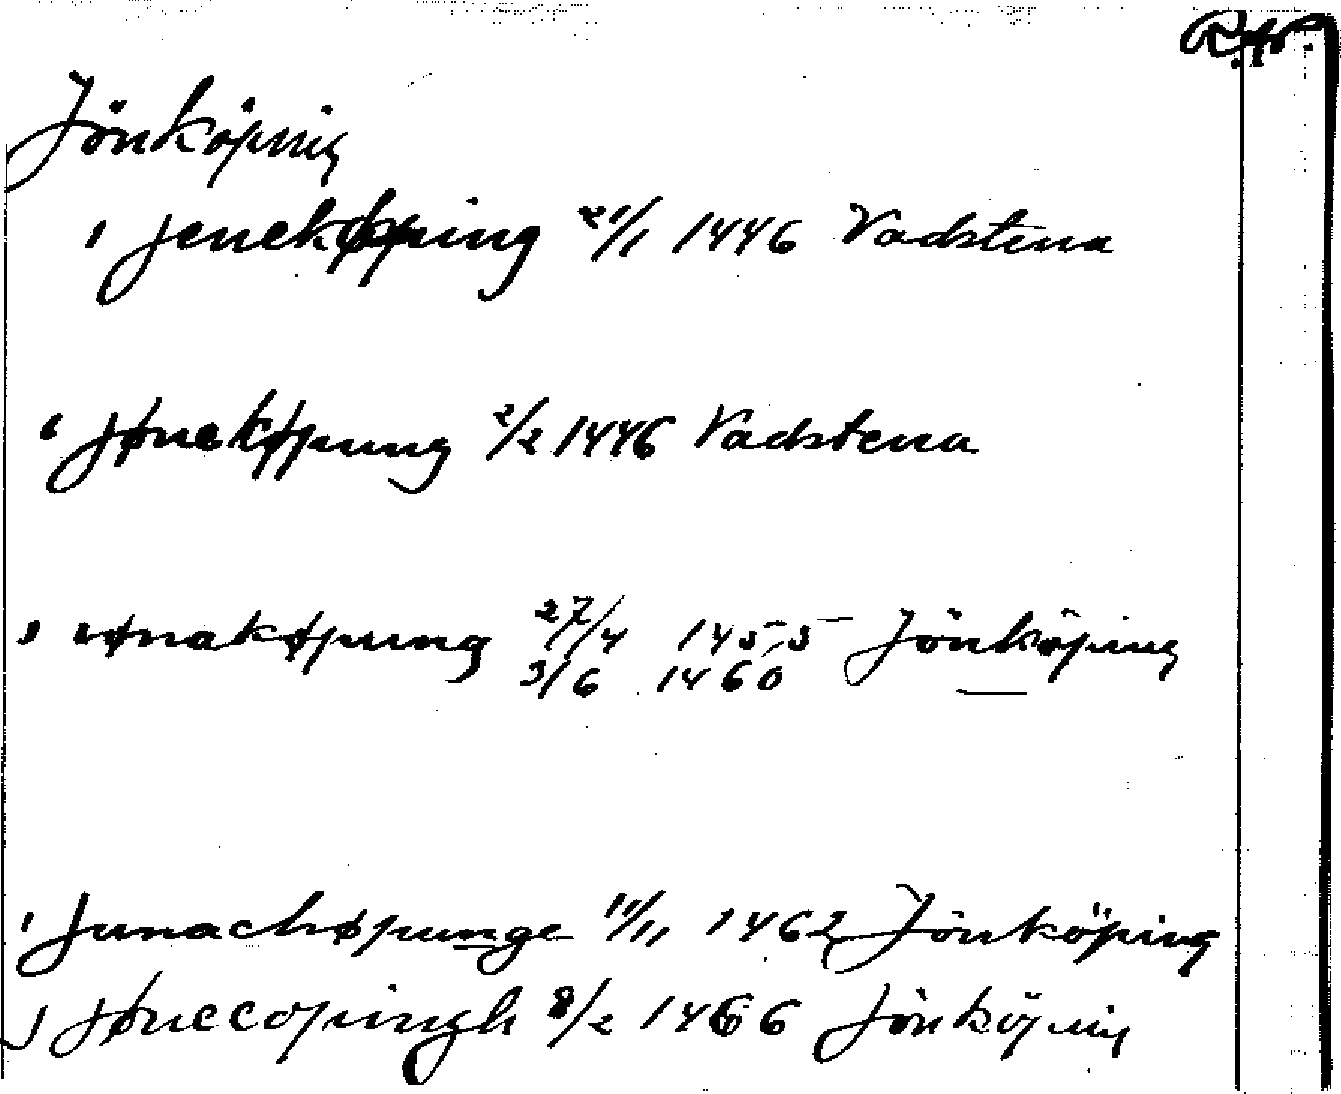 R.Ap.
Jönköping
i jenekøping 21/1 1446 Vadstena
i jønekøpung 2/2 1446 Vadstena
i iønakøpung 27/4 1455 Jönköping
3/6 1460
i junachøpunge 11/11 1462 Jönköping
j jønecopingh 8/2 1466 Jönköping